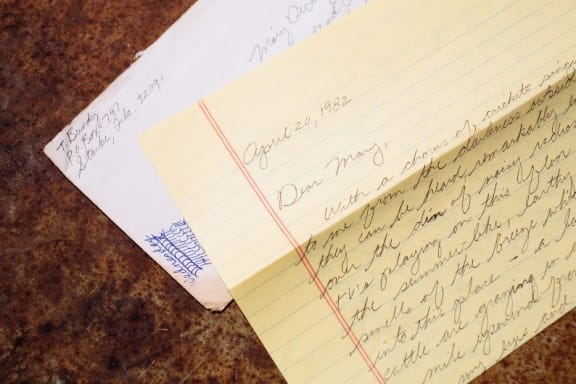 T. Bundy
P.O. Box 747
Starke, Fla. 32091
Mary
April 20, 1982
Dear Mary,
With a chorus of crickets
to me from the darkness outside
they can be heard remarkably
over the din of noisy
t.v.'s playing on this floor
the summer-like, earthy
smells of the breeze
into this place - a
cattle are grazing in
mile upwind
my eyes and